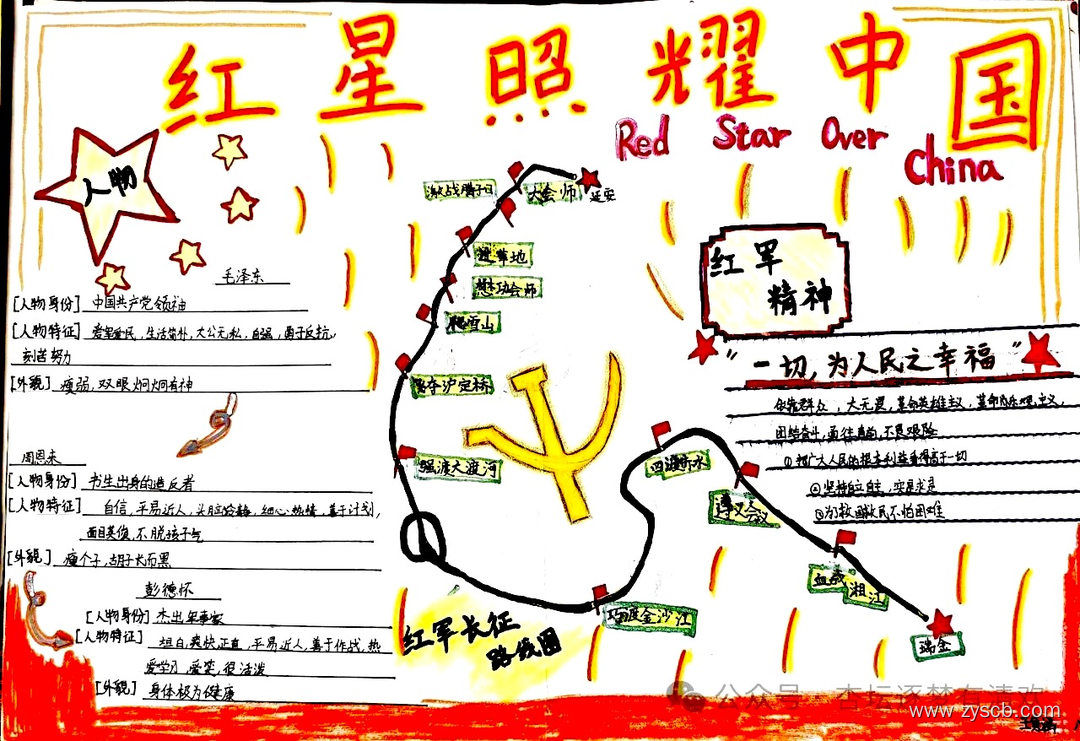 红星照耀中国
Red Star Over China
人物
毛泽东
[人物身份] 中国共产党领袖
[人物特征] 爱军爱民,生活简朴,大公无私,自强,勇于反抗,
刻苦努力
[外貌] 瘦弱,双眼炯炯有神
周恩来
[人物身份] 书生出身的造反者
[人物特征] 自信,平易近人,头脑冷静,细心热情,善于计划,
面目英俊,不脱孩子气
[外貌] 瘦个子,胡子大而黑
彭德怀
[人物身份] 杰出军事家
[人物特征] 坦白爽快正直,平易近人,善于作战,热
爱学习,爱笑,很活泼
[外貌] 身体极为健康
激战腊子口
大会师
延安
过草地
懋功会师
爬雪山
飞夺泸定桥
强渡大渡河
四渡赤水
遵义会议
血战湘江
巧渡金沙江
瑞金
红军长征
路线图
红军
精神
"一切,为人民之幸福"
依靠群众,大无畏,革命英雄主义,革命乐观主义,
团结奋斗,勇往直前,不畏艰险
①把广大人民的根本利益看得高于一切
②坚持自立自主,实事求是
③为了救国救民不怕困难
公众号 杏坛逐梦有清欢
www.zyscb.com